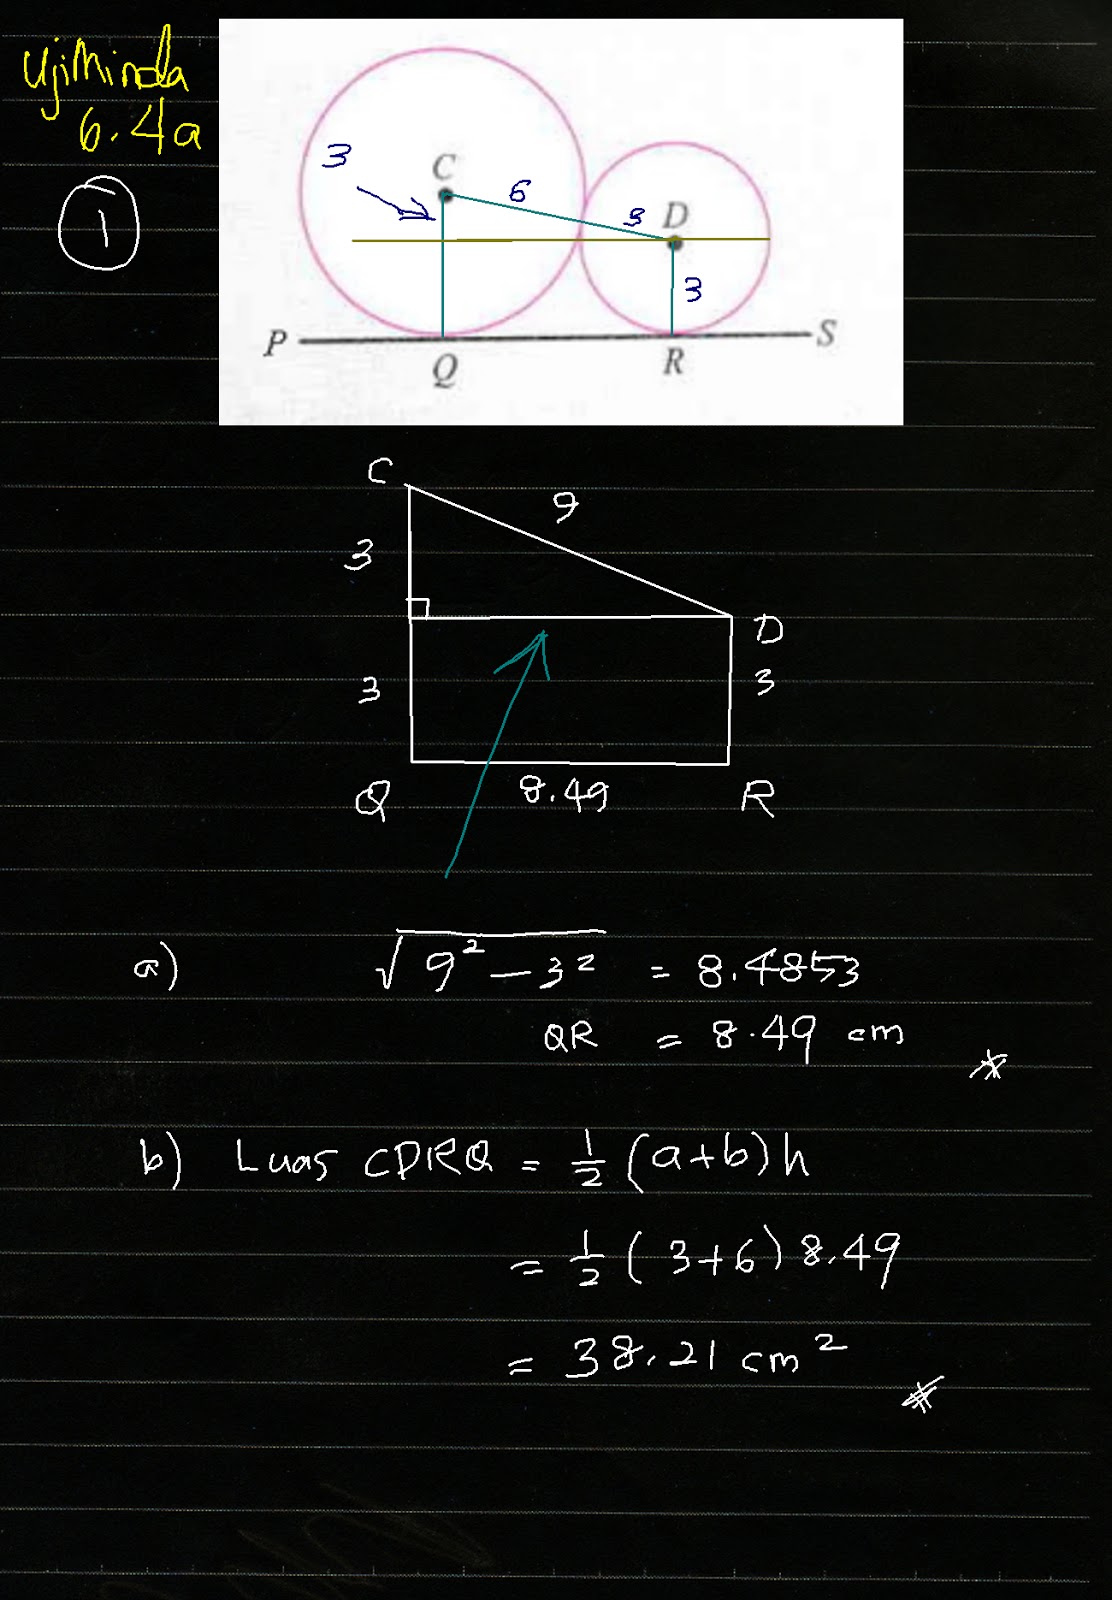 UjiMinda
6.4a
1
3
C
6
3
D
3
P
Q
R
S
C
9
3
D
3
3
Q
8.49
R
a) √9² - 3² = 8.4853
QR = 8.49 cm
b) Luas CDRQ = 1/2 (a+b) h
= 1/2 (3+6) 8.49
= 38.21 cm²